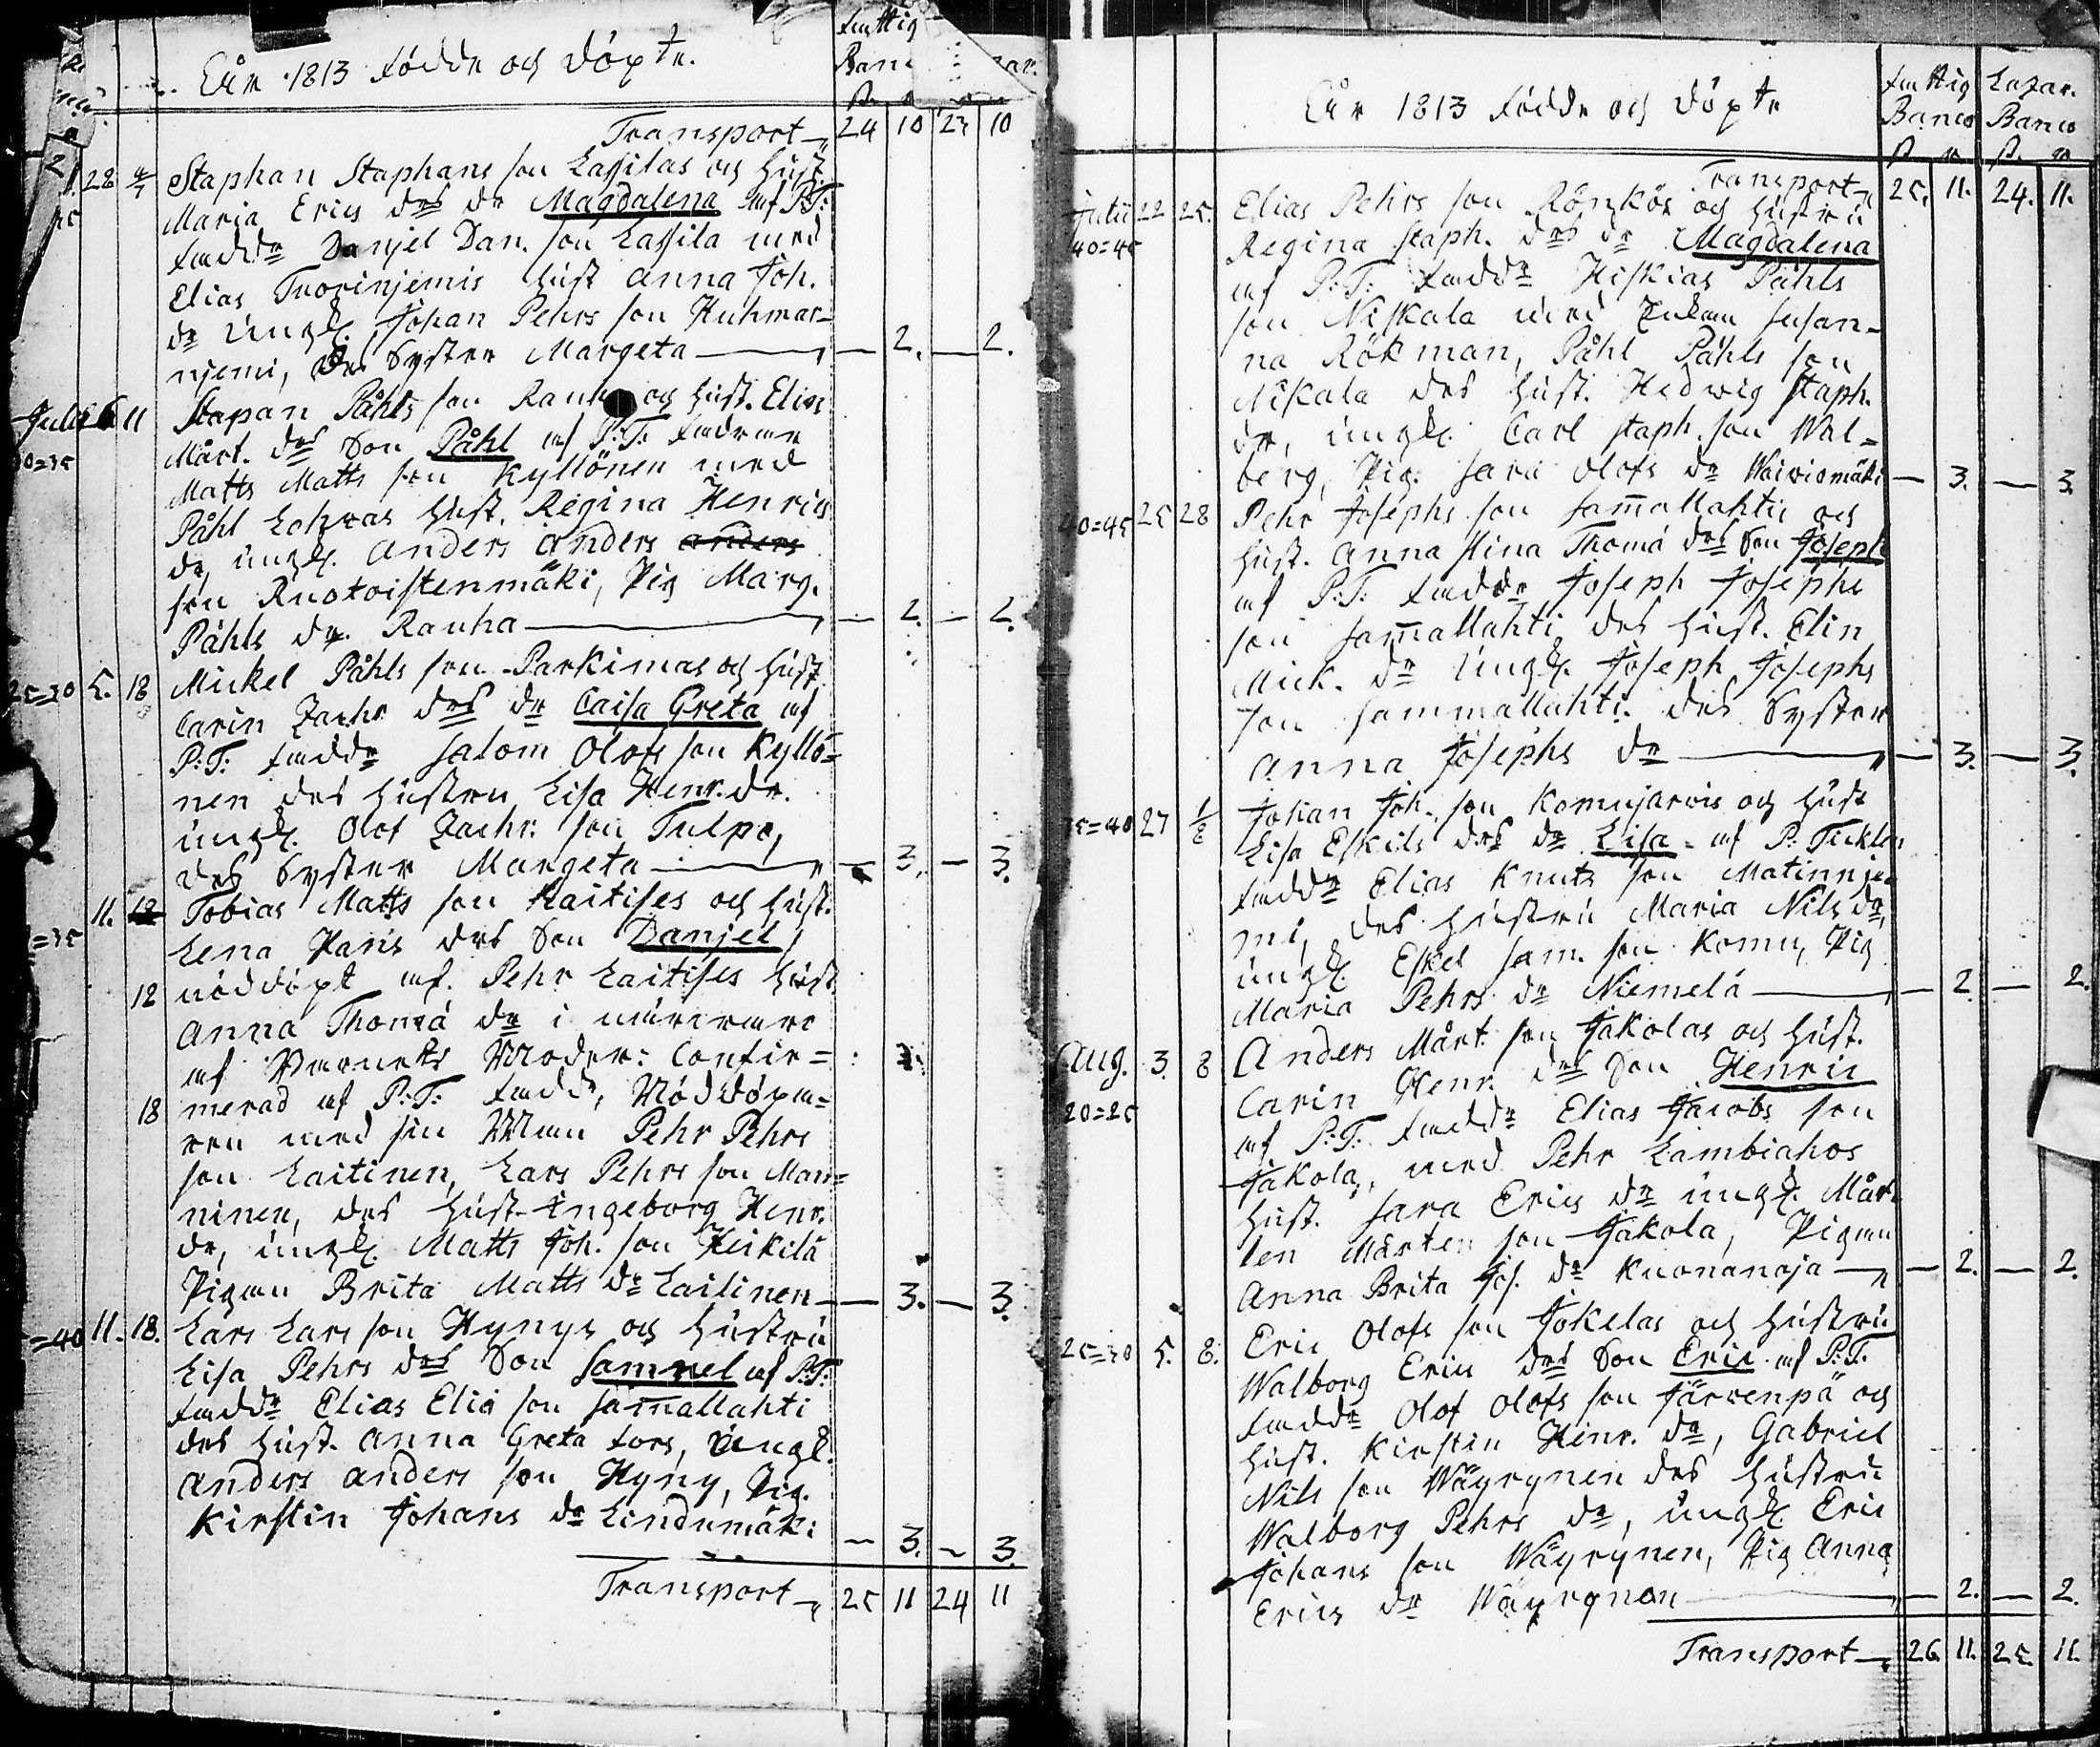 År 1813 födde och döpte.
fattig
Banc
Transport 24 10 23 10
28 4/7 Staphan Staphans son Lassilas och hust.
Maria Erics des dr Magdalena af P:T:
faddr Danjel Dan. son Lassila med
Elias Tvorinjemis hust Anna Joh.
dr ungk. Johan Pehrs son Huhmar-
njemi, des Syster Margeta — 2. — 2.
Julii 6 11 Stapan Påhls son Rauh och hust. Elin
30=35 Mårt. des Son Påhl af P:T: faddrar
Matts Matts son Kyllönen med
Påhl Lohvas hust. Regina Henrics
dr, ungk. Anders Anders anders
son Ruotoistenmäki, Pig Marg.
Påhls dr. Rauha — 2. — 2.
25=30 5. 18 Mickel Påhls son Parkimas och hust.
Carin Zachr. des dr Caisa Greta af
P:T: faddr Salom Olofs son Kyllö=
nen des hustru Lisa Henr. dr.
ungk. Olof Zachr. son Tulpo,
des Syster Margeta — 3. — 3.
11. 12 Tobias Matts son Laitises och hust.
=35 Lena Hans des Son Danjel,
12 nöddöpt af Pehr Laitises hust.
Anna Thomä dr i närvaro
af Barnets Moder: Confir=
18 merad af P:T: fadd, Nöddöpa=
ren med sin Man Pehr Pehrs
son Laitinen, Lars Pehrs son Man=
ninen, des hust Ingeborg Henr.
dr, ungk. Matts Joh. son Heikilä
Pigan Brita Matts dr Laitinen — 3. — 3.
=40 11. 18. Lars Lars son Hynys och hustru
Lisa Pehrs des Son Samuel af P:T:
faddr Elias Eliä son Sam̅allahti
des hust. Anna Greta fors, Ungk.
Anders Anders son Hyny, Pig.
Kirstin Johans dr Lindumäki — 3. — 3.
Transport 25 11 24 11
År 1813 födde och döpte
fattig Lazar.
Banco Banco
Transport 25. 11. 24. 11.
Julii 22 25. Elias Pehrs son Rönkös och hustru
40=45 Regina Staph. des dr Magdalena
af P:T: faddr Hiskias Påhls
son Niskala med Susan-
na Rökman, Påhl Påhls son
Niskala des hust. Hedwig Staph.
dr, ungk. Carl Staph. son Wal=
berg, Pig. Sara Olofs dr Waiviomäki — 3. — 3.
40=45 25 28 Pehr Josephs son Sam̅allahtis och
hust. Anna Stina Thomä des Son Joseph
af P:T: faddr Joseph Josephs
son Sam̅allahti des hust. Elin
Mick. dr Ungk. Joseph Josephs
son Sammallahti. des Syster
Anna Josephs dr — 3. — 3.
35=40 27 1/8 Johan Joh. son Komujärwis och hust
Lisa Eskils des dr Lisa af P: Ticklen
faddr Elias Knuts son Matinnje
mi, des hustru Maria Nils dr,
ungk. Eskel Sam. son Komu, Pig
Maria Pehrs dr Niemelä — 2. — 2.
Aug. 3. 8 Anders Mårt. son Jakolas och hust.
20=25 Carin Henr. des Son Henric
af P:T: faddr Elias Jacobs son
Jakola, med Pehr Lambiahos
hust. Sara Erics dr ungk. Mår-
ten Mårten son Jakola, Pigan
Anna Brita Jos. dr Kuonanoja — 2. — 2.
25=30 5. 8. Eric Olofs son Jokelas och hustru
Walborg Erics des Son Eric af P:T.
faddr Olof Olofs son Järvenpä och
hust. Kirstin Henr. dr, Gabriel
Nils son Wäyrynen des hustru
Walborg Pehrs dr, ungk. Eric
Johans son Wäyrynen, Pig Anna
Erics dr Wäyrynen — 2. — 2.
Transport 26. 11. 25. 11.